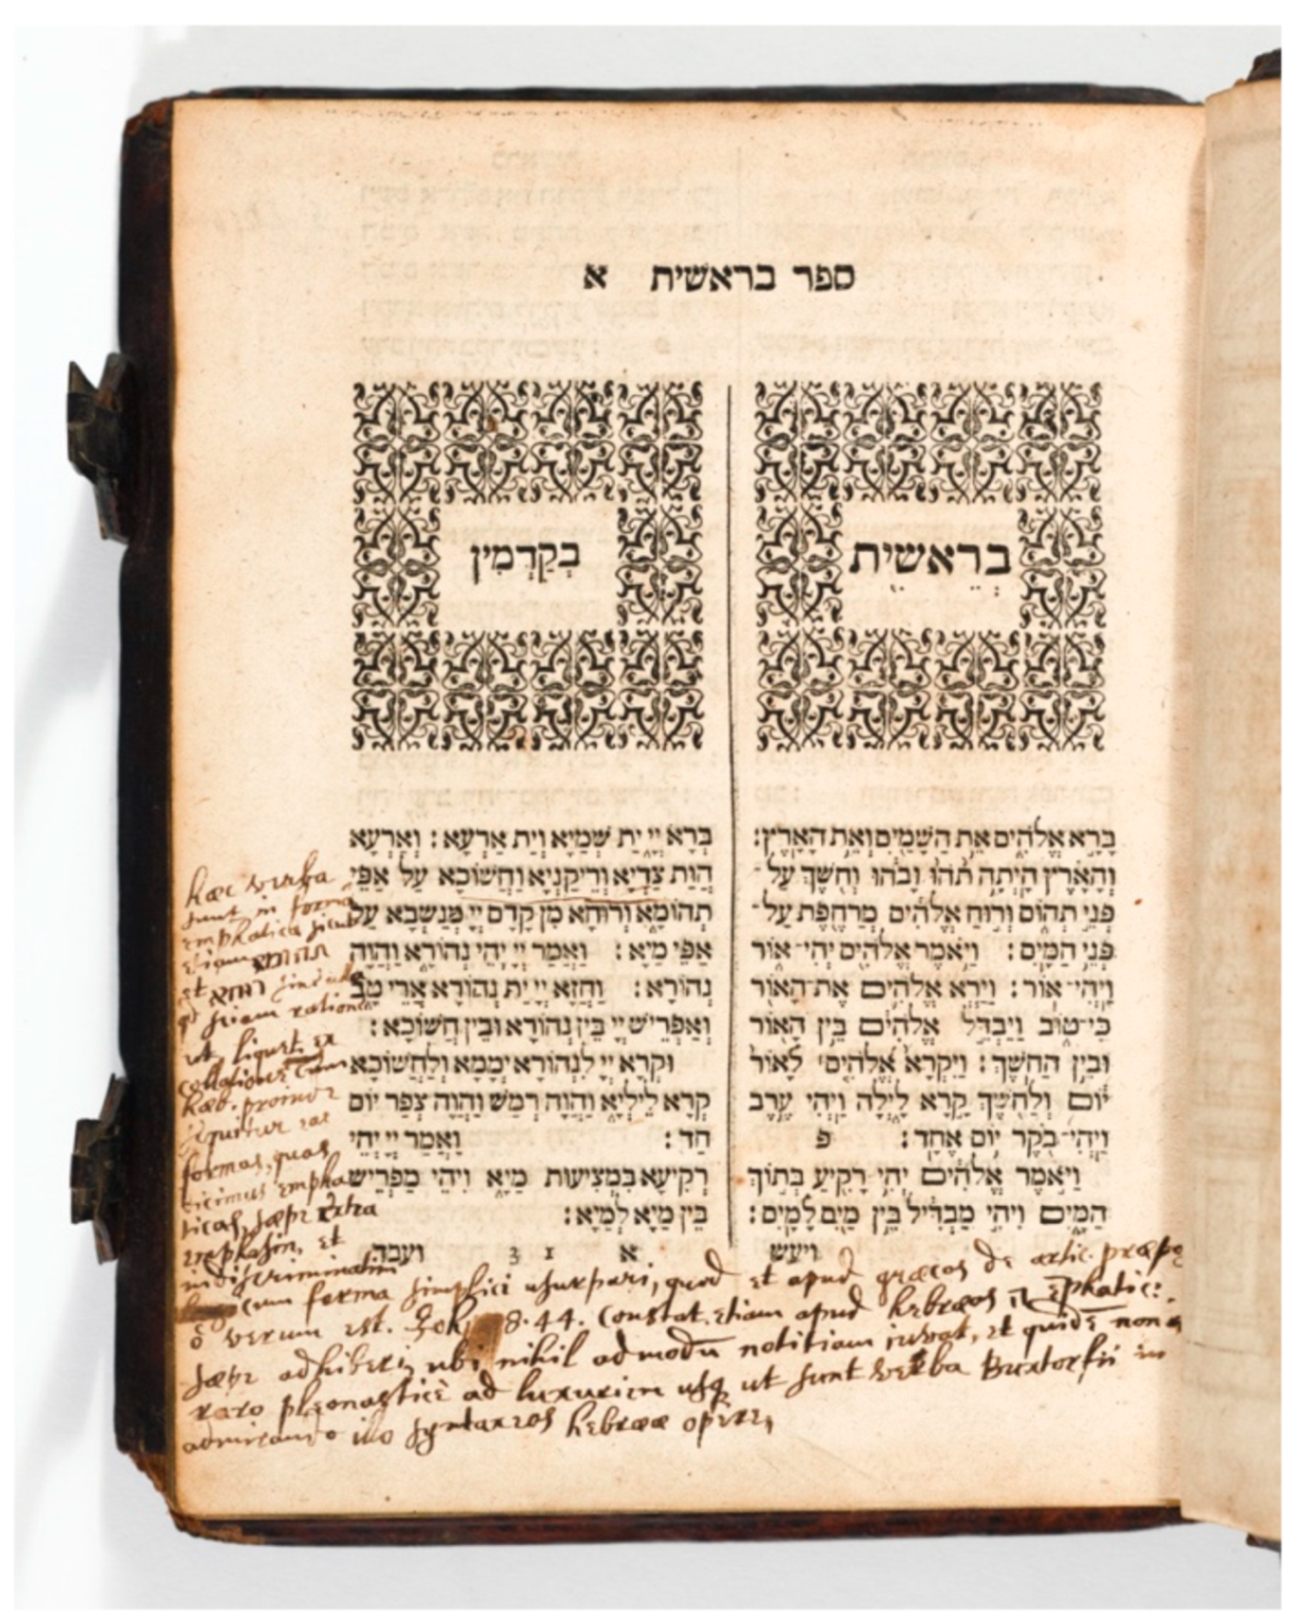 ספר בראשית א
בְּרֵאשִׁית
בָּרָא אֱלֹהִים אֵת הַשָּׁמַיִם וְאֵת הָאָרֶץ׃
וְהָאָרֶץ הָיְתָה תֹהוּ וָבֹהוּ וְחֹשֶׁךְ עַל־
פְּנֵי תְהוֹם וְרוּחַ אֱלֹהִים מְרַחֶפֶת עַל־
פְּנֵי הַמָּיִם׃ וַיֹּאמֶר אֱלֹהִים יְהִי־אוֹר
וַיְהִי־אוֹר׃ וַיַּרְא אֱלֹהִים אֶת־הָאוֹר
כִּי־טוֹב וַיַּבְדֵּל אֱלֹהִים בֵּין הָאוֹר
וּבֵין הַחֹשֶׁךְ׃ וַיִּקְרָא אֱלֹהִים׀ לָאוֹר
יוֹם וְלַחֹשֶׁךְ קָרָא לָיְלָה וַיְהִי עֶרֶב
וַיְהִי־בֹקֶר יוֹם אֶחָד׃ פ
וַיֹּאמֶר אֱלֹהִים יְהִי רָקִיעַ בְּתוֹךְ
הַמָּיִם וִיהִי מַבְדִּיל בֵּין מַיִם לָמָיִם׃
ויעש
בְּקַדְמִין
בְּרָא יְיָ יָת שְׁמַיָא וְיָת אַרְעָא׃ וְאַרְעָא
הֲוַת צַדְיָא וְרֵיקַנְיָא וַחֲשׁוֹכָא עַל אַפֵּי
תְהוֹמָא וְרוּחָא מִן קֳדָם יְיָ מְנַשְּׁבָא עַל
אַפֵּי מַיָא׃ וַאֲמַר יְיָ יְהִי נְהוֹרָא וַהֲוָה
נְהוֹרָא׃ וַחֲזָא יְיָ יָת נְהוֹרָא אֲרֵי טָב
וְאַפְרֵישׁ יְיָ בֵּין נְהוֹרָא וּבֵין חֲשׁוֹכָא׃
וּקְרָא יְיָ לִנְהוֹרָא יְמָמָא וְלַחֲשׁוֹכָא
קְרָא לֵילְיָא וַהֲוָה רְמַשׁ וַהֲוָה צְפַר יוֹם
חַד׃ וַאֲמַר יְיָ יְהִי
רְקִיעָא בִּמְצִיעוּת מַיָא וִיהֵי מַפְרֵישׁ
בֵּין מַיָא לְמַיָא׃
א 1 3 ועבד
hæc verba
sunt in forma
emphatica sicut
etiam תהומא
et רוחא
rationem
ut liquet ex
collatione cum
hæb.
sequitur
formas, quas
dicimus empha
ticas, sæpe extra
emphasin, et
indiscriminatim
cum forma simplici usurpari, quod et apud græcos de artic. præpo
ὁ verum est. 8.44. Constat etiam apud hebræos ה ephatic:
sæpe adhiberi, ubi nihil admodū notitiam iuvat, et quidē non
raro pleonasticè ad luxuriem usq ut sunt verba Buxtorfii in
admirando illo syntaxeos hebrææ opere,